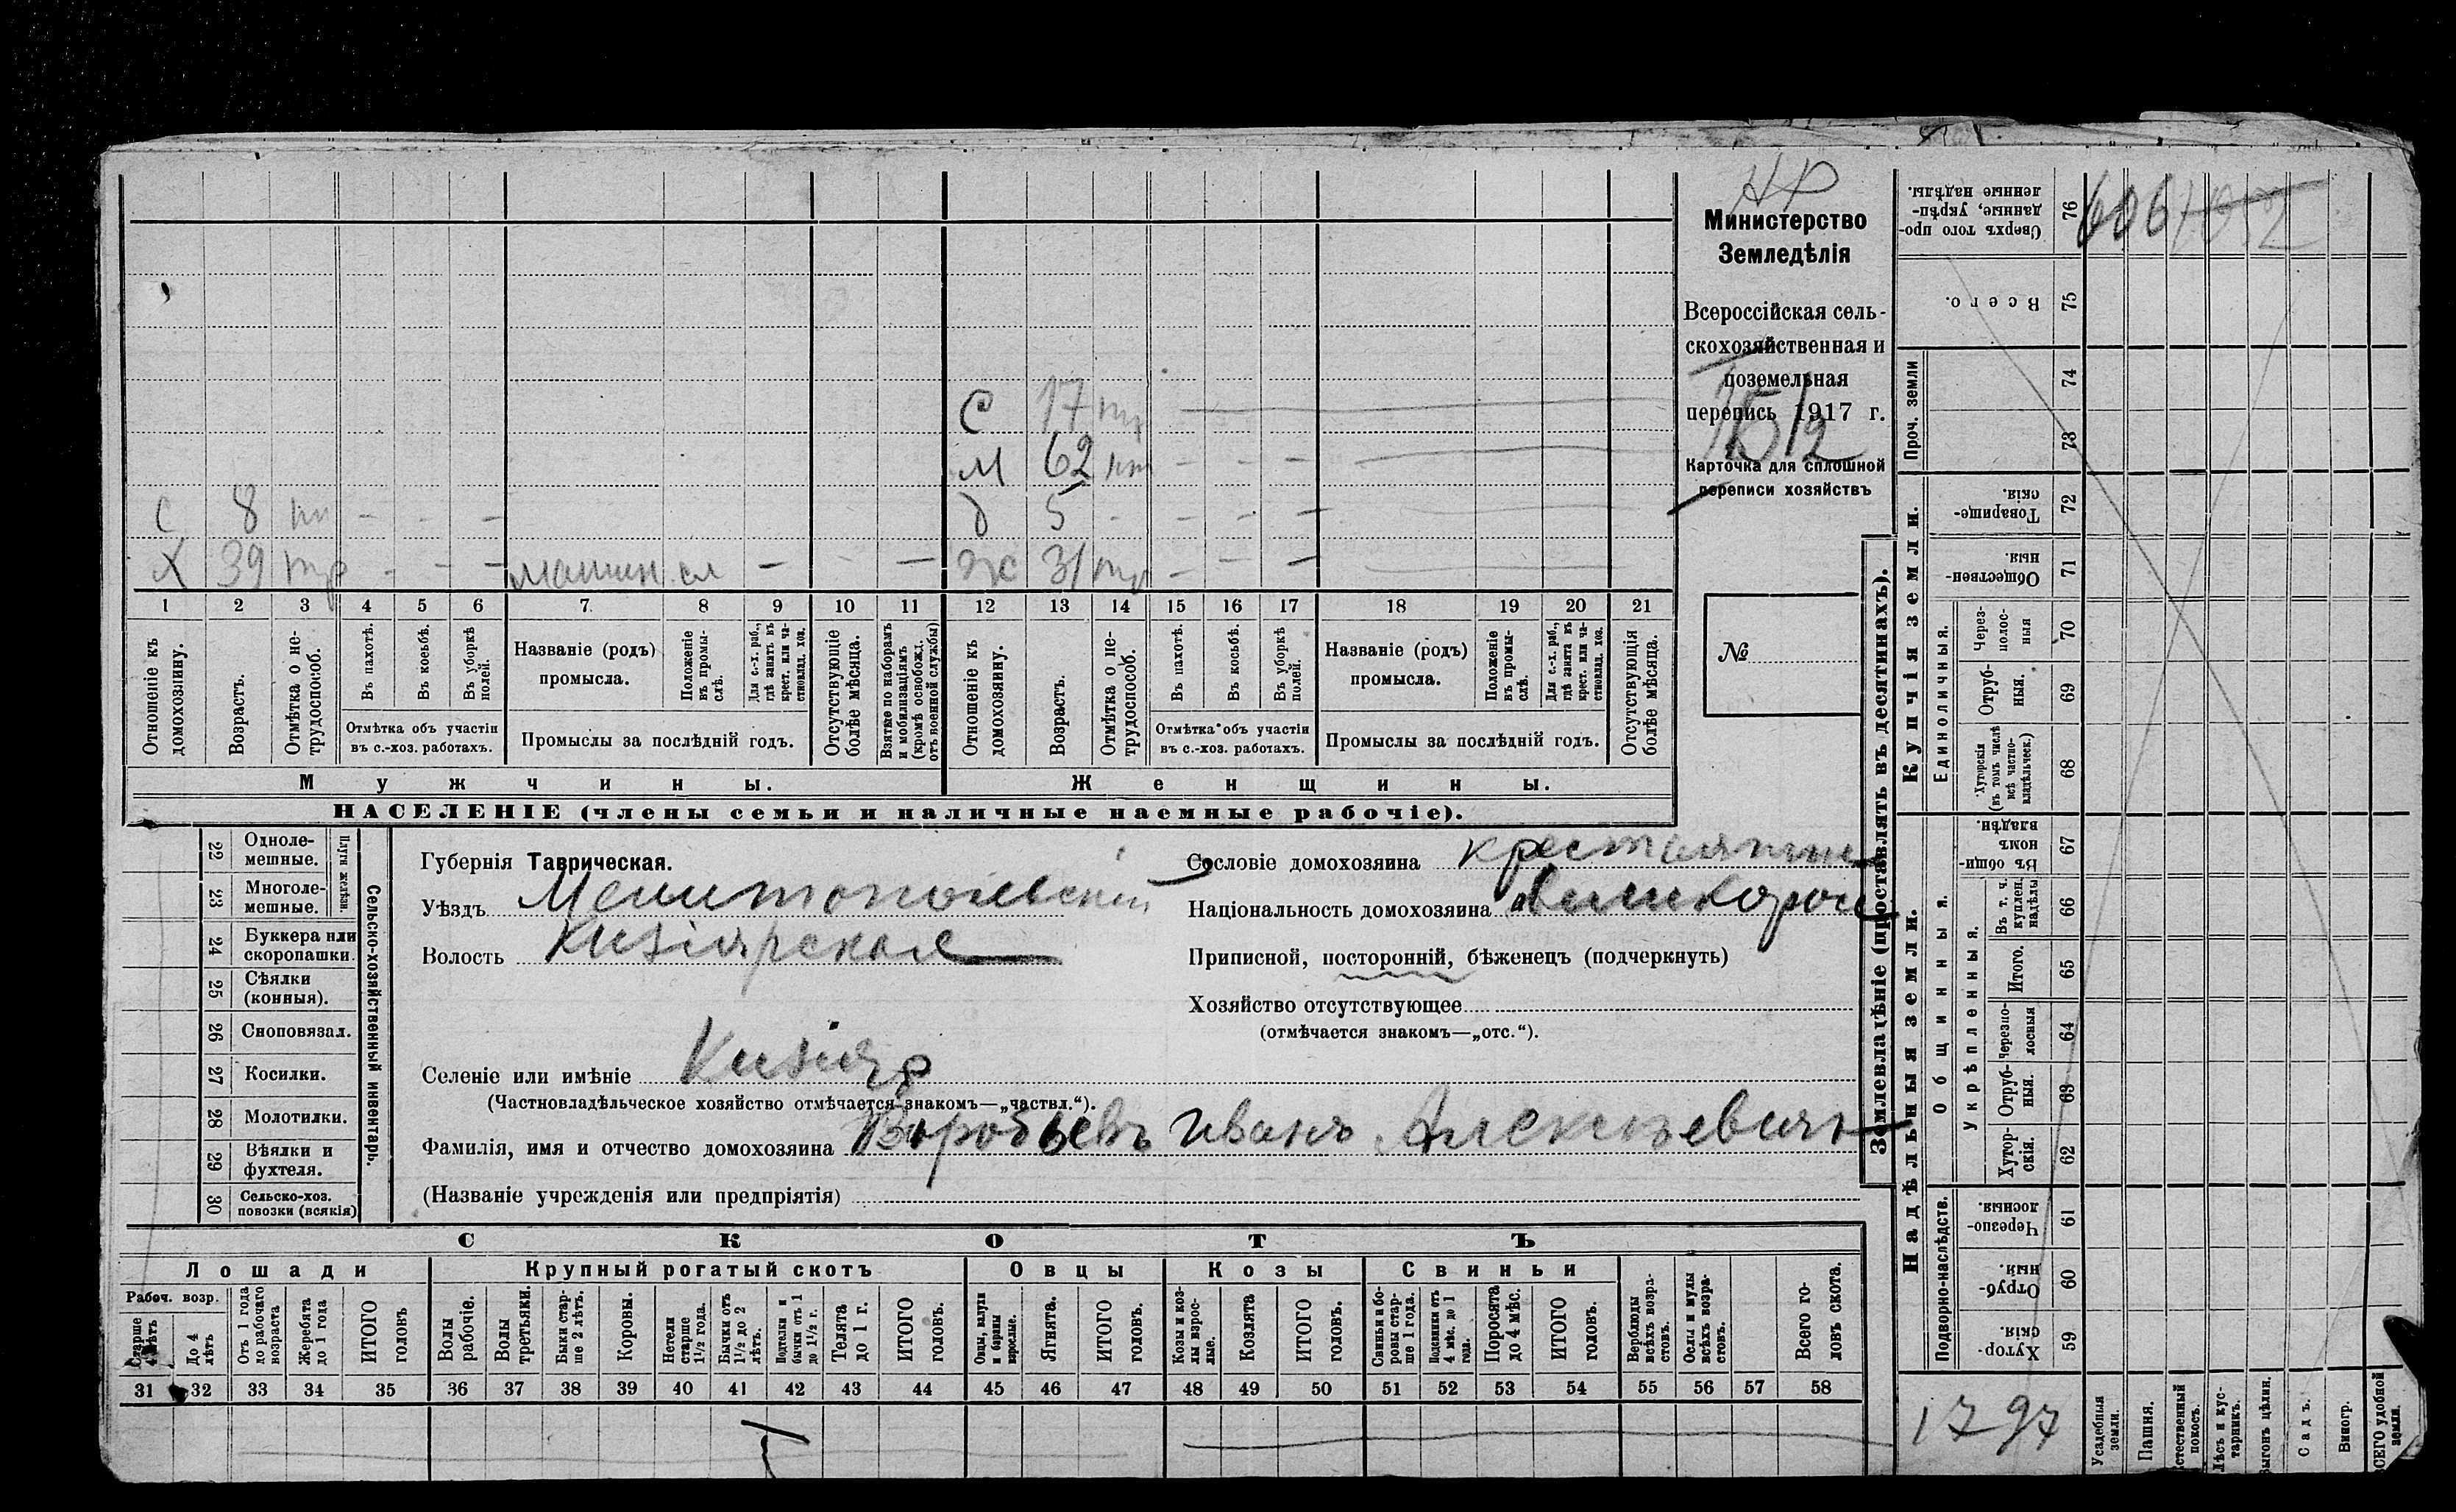 НР
Министерство
Земледѣлія
Всероссійская сель-
скохозяйственная и
поземельная
перепись 1917 г.
Карточка для сплошной
переписи хозяйствъ
№
С 17
М 62
С 8 — — —
д 5 — — —
Х 39 тр — — — машин сл — — —
ж 31 тр — — —
1 2 3 4 5 6 7 8 9 10 11 12 13 14 15 16 17 18 19 20 21
Отношеніе къ домохозяину.
Возрастъ.
Отмѣтка о не-трудоспособ.
Въ пахотѣ.
Въ косьбѣ.
Въ уборкѣ полей.
Отмѣтка объ участіи
въ с.-хоз. работахъ.
Названіе (родъ)
промысла.
Положеніе въ промы-слѣ.
Для с.-х. раб., гдѣ занятъ въ крест. или ча-стновлад. хоз.
Промыслы за послѣдній годъ.
Отсутствующіе болѣе мѣсяца.
Взятые по наборамъ и мобилизаціямъ (кромѣ освобожд. отъ военной службы)
Отношеніе къ домохозяину.
Возрастъ.
Отмѣтка о не-трудоспособ.
Въ пахотѣ.
Въ косьбѣ.
Въ уборкѣ полей.
Отмѣтка объ участіи
въ с.-хоз. работахъ.
Названіе (родъ)
промысла.
Положеніе въ промы-слѣ.
Для с.-х. раб., гдѣ занята въ крест. или ча-стновлад. хоз.
Промыслы за послѣдній годъ.
Отсутствующія болѣе мѣсяца.
Мужчины.
Женщины.
НАСЕЛЕНІЕ (члены семьи и наличные наемные рабочіе).
Сельско-хозяйственный инвентарь.
Плуги желѣзн.
22 Одноле-мешные.
23 Многоле-мешные.
24 Буккера или скоропашки.
25 Сѣялки (конныя).
26 Сноповязал.
27 Косилки.
28 Молотилки.
29 Вѣялки и фухтеля.
30 Сельско-хоз. повозки (всякія)
Губернія Таврическая.
Уѣздъ Мелитопольскій
Волость Кизіярская
Селеніе или имѣніе Кизіяр
(Частновладѣльческое хозяйство отмѣчается знакомъ—„частвл.“).
Фамилія, имя и отчество домохозяина Воробьевъ Иванъ Алексѣевичъ
(Названіе учрежденія или предпріятія)
Сословіе домохозяина
Національность домохозяина великорос
Приписной, посторонній, бѣженецъ (подчеркнуть)
Хозяйство отсутствующее
(отмѣчается знакомъ—„отс.“).
СКОТЪ
Лошади
Крупный рогатый скотъ
Овцы
Козы
Свиньи
Рабоч. возр.
Старше 4 лѣтъ
До 4 лѣтъ
Отъ 1 года до рабочаго возраста
Жеребята до 1 года
ИТОГО головъ
Волы рабочіе.
Волы третьяки.
Быки стар-ше 2 лѣтъ.
Коровы.
Нетели старше 1½ года.
Бычки отъ 1½ до 2 лѣтъ.
Подтелки и бычки отъ 1 до 1½ г.
Телята до 1 г.
ИТОГО головъ.
Овцы, валухи и бараны взрослые.
Ягнята.
ИТОГО головъ.
Козы и коз-лы взрос-лые.
Козлята
ИТОГО головъ.
Свиньи и бо-ровы стар-ше 1 года.
Подсвинки отъ 4 мѣс. до 1 года.
Поросята до 4 мѣс.
ИТОГО головъ.
Верблюды всѣхъ возра-стовъ.
Ослы и мулы всѣхъ возра-стовъ.
Всего го-ловъ скота.
31 32 33 34 35 36 37 38 39 40 41 42 43 44 45 46 47 48 49 50 51 52 53 54 55 56 57 58
Землевладѣніе (проставлять въ десятинахъ).
Купчія земли.
Надѣльныя земли.
Проч. земли
Единоличныя.
Общинныя.
Укрѣпленныя.
Подворно-наслѣдств.
76 Сверхъ того про-данные, укрѣп-ленные надѣлы.
606
75 Всего.
74
73
72 Товарище-скія.
71 Обществен-ныя.
70 Через-полос-ныя
69 Отруб-ныя.
68 Хуторскія (въ томъ числѣ всѣ частно-владѣльческ.)
67 Въ общи-номъ владѣн.
66 Въ т. ч. куплен. надѣлы
65 Итого.
64 Черезпо-лосныя
63 Отруб-ныя.
62 Хутор-скія.
61 Черезпо-лосныя.
60 Отруб-ныя.
59 Хутор-скія.
1797
Усадебныя земли.
Пашня.
Естественный покосъ.
Лѣсъ и кус-тарникъ.
Выгонъ цѣлин.
Садъ.
Виногр.
ВСЕГО удобной земли.